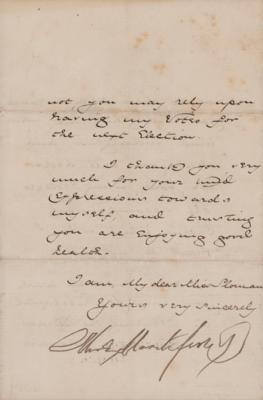 not you may rely upon
having my Votes for
the next Election.
I thank you very
much for your kind
Expressions towards
myself and trusting
you are enjoying good
health.
I am, My dear Miss
Yours very sincerely